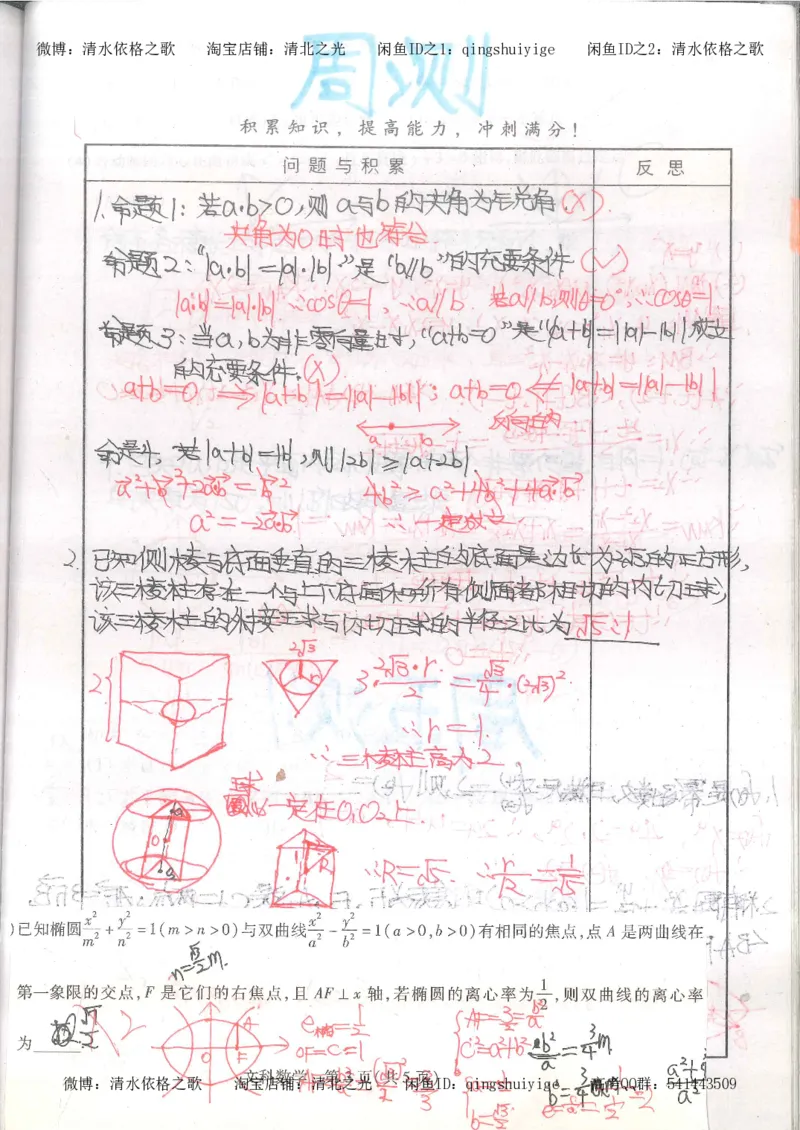 微博：清水依格之歌 淘宝店铺：清北之光 闲鱼ID之1：qingshuiyige 闲鱼ID之2：清水依格之歌
周测
积累知识，提高能力，冲刺满分！
问题与积累 反思
1.命题1：若a·b>0，则a与b的夹角为锐角(×).
夹角为0时也符合
命题2：“|a·b|=|a|·|b|”是“a∥b”的充要条件(√)
|a·b|=|a|·|b| ∴cosθ=1，∴a∥b. 若a∥b，则θ=0°，∴cosθ=1
命题3：当a,b为非零向量时，“a+b=0”是“|a+b|=||a|-|b||成立
的充要条件.(×)
a+b=0 ⟹ |a+b|=||a|-|b||；a+b=0 |a+b|=||a|-|b||
a b
命题4，若|a+b|=|b，则|2b|≥|a+2b|.
a²+b²+2a·b=b² 4b²≥a²+4b²+4a·b
a²=-2a·b ∴一定成立
2.已知侧棱与底面垂直的三棱柱的底面是边长为2√3的正三角形，
该三棱柱存在一个与上下底面和所有侧面都相切的内切球，
该三棱柱的外接球与内切球的半径之比为√5:1
2√3
r
2
3·2√3·r/2=√3/4·(2√3)²
∴r=1.
∴三棱柱高为2
球心一定在O₁O₂上.
O
1
R
∴R=√5. ∴r/R=1/√5
)已知椭圆x²/m²+y²/n²=1(m>n>0)与双曲线x²/a²-y²/b²=1(a>0,b>0)有相同的焦点,点A是两曲线在
n=√3/2m.
第一象限的交点,F是它们的右焦点,且AF⊥x轴,若椭圆的离心率为1/2,则双曲线的离心率
为
A
O F
e椭=1/2
OF=c=1
c²=a²+b²
文科数学 第3页(共5页)
微博：清水依格之歌 淘宝店铺：清北之光 闲鱼ID：qingshuiyige 高考QQ群：541443509